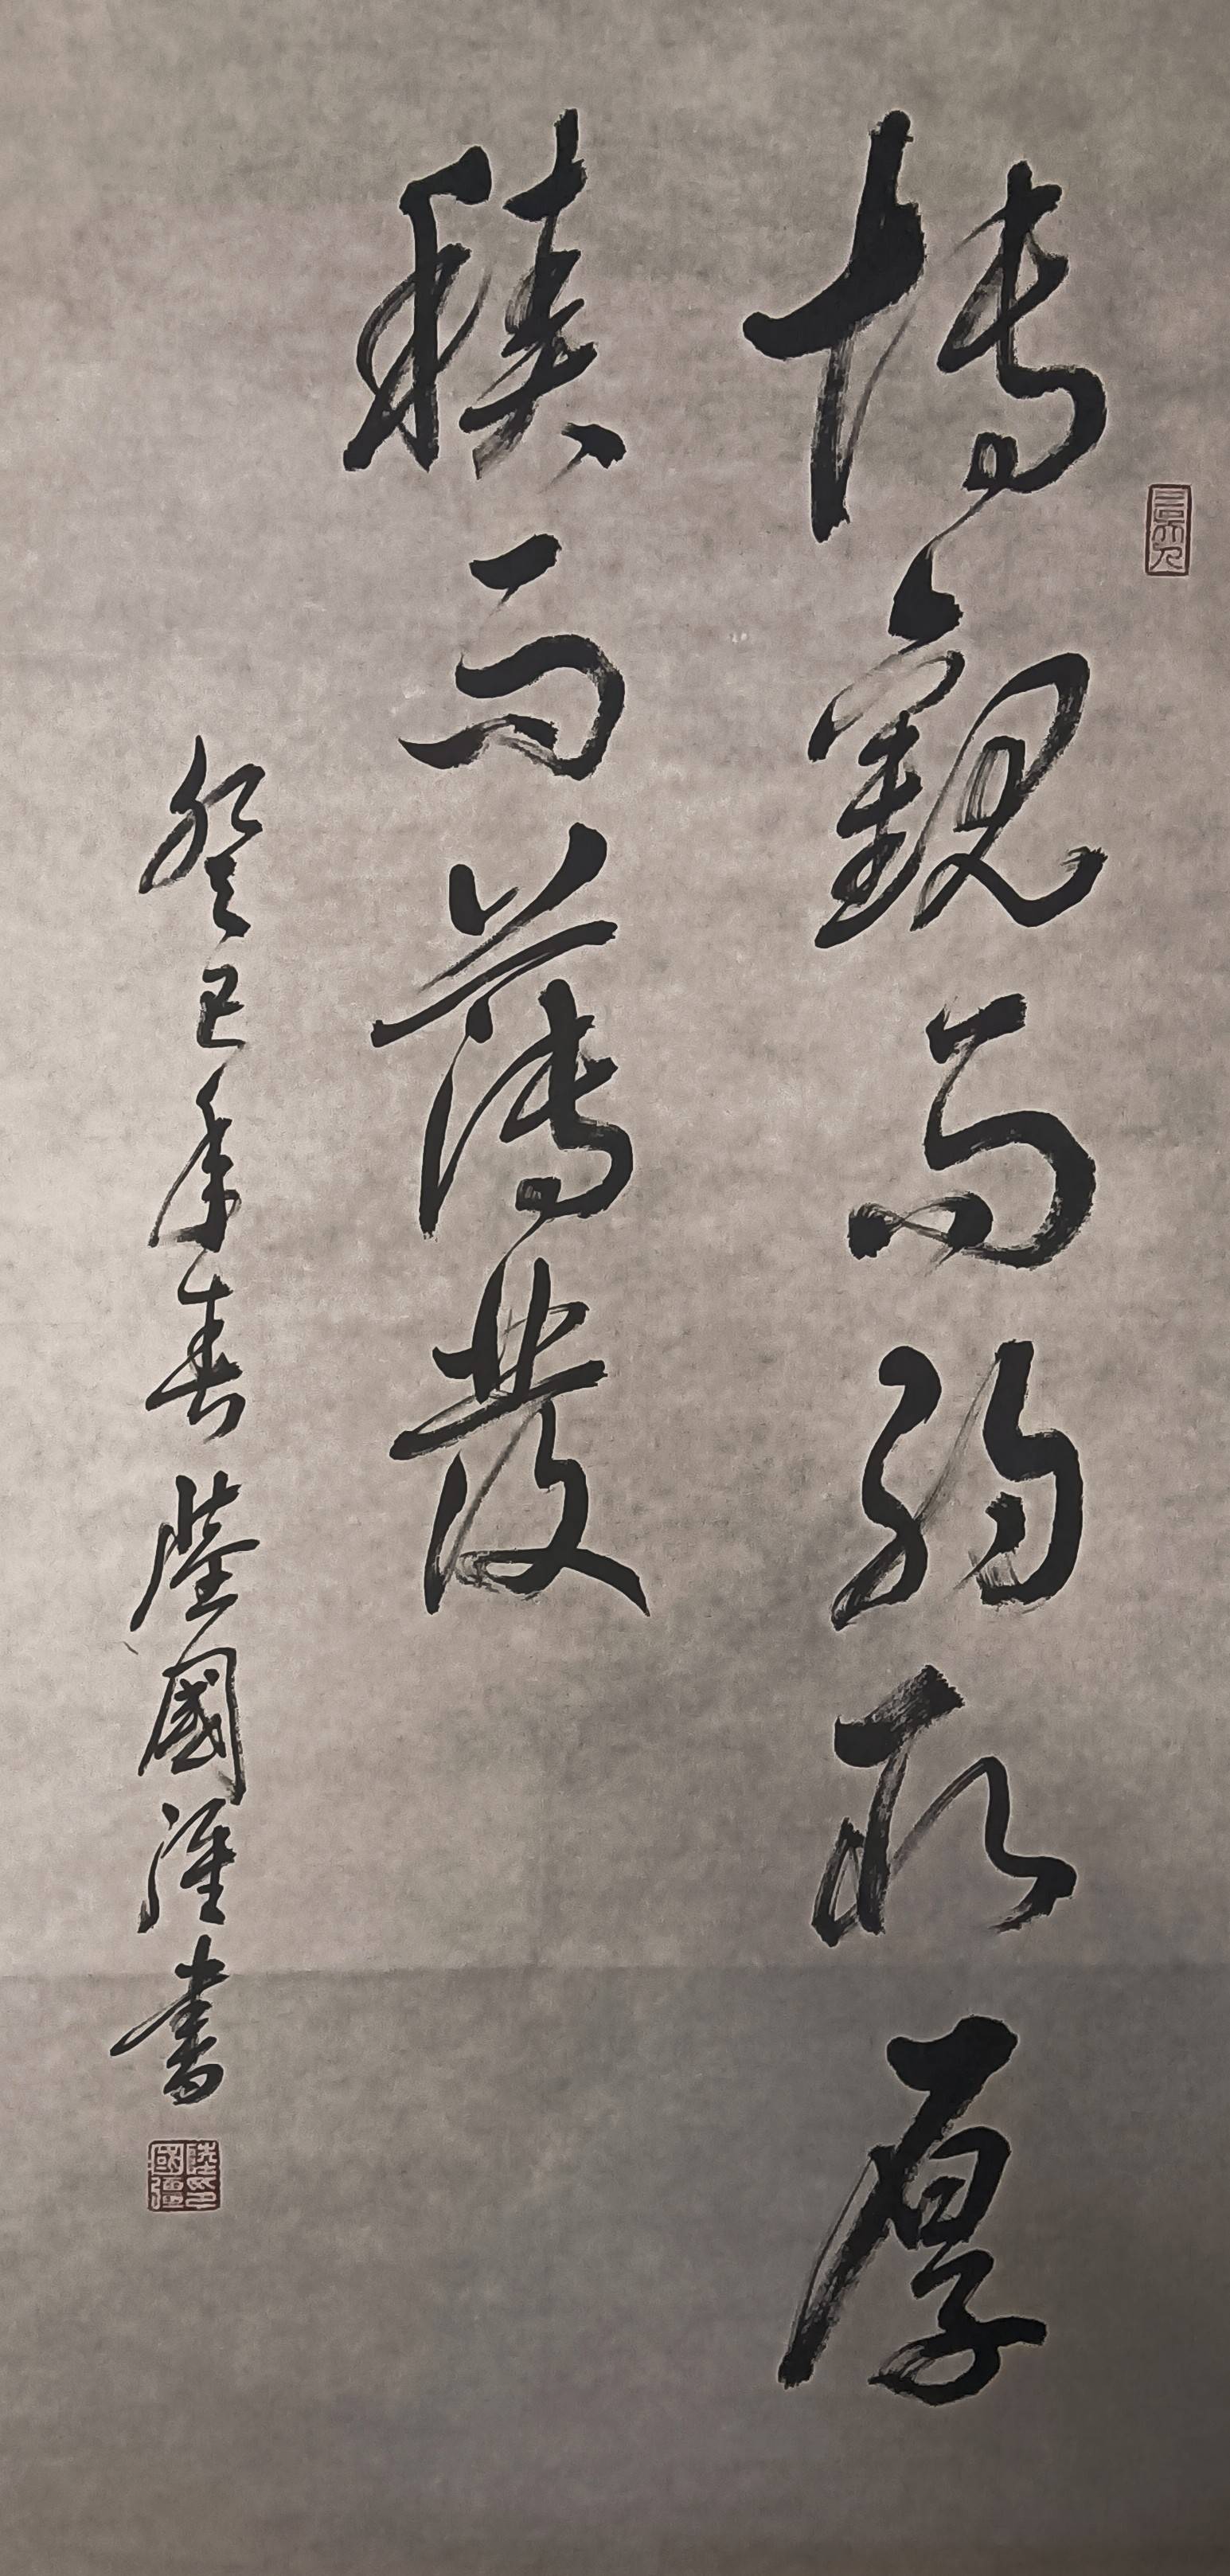 博觀而約取厚
積而薄發
癸巳年春陸國強書
陸國彊印